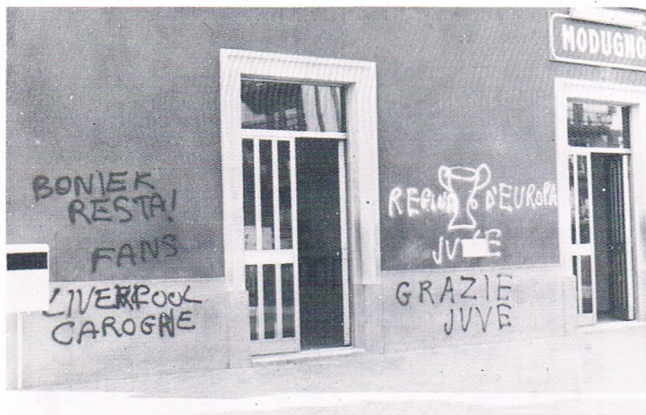 MODUGNO
BONIEK
RESTA!
FANS
LIVERPOOL
CAROGNE
REGINA D'EUROPA
JUVE
GRAZIE
JUVE